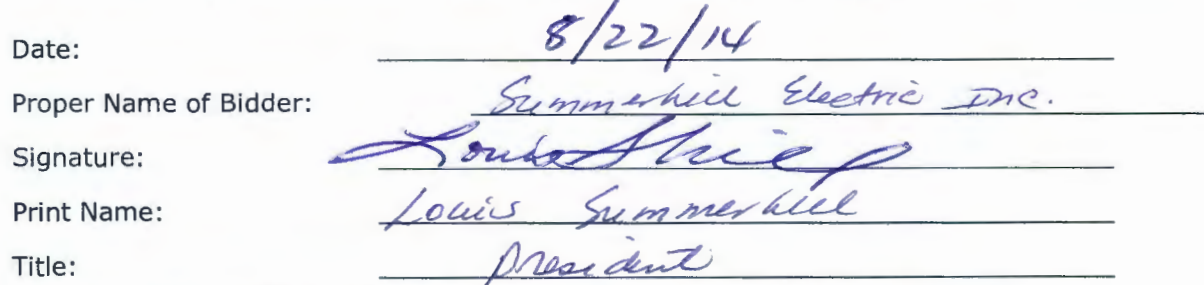 Date: 8/22/14
Proper Name of Bidder: Summerhill Electric Inc.
Signature: Louis
Print Name: Louis Summerhill
Title: President